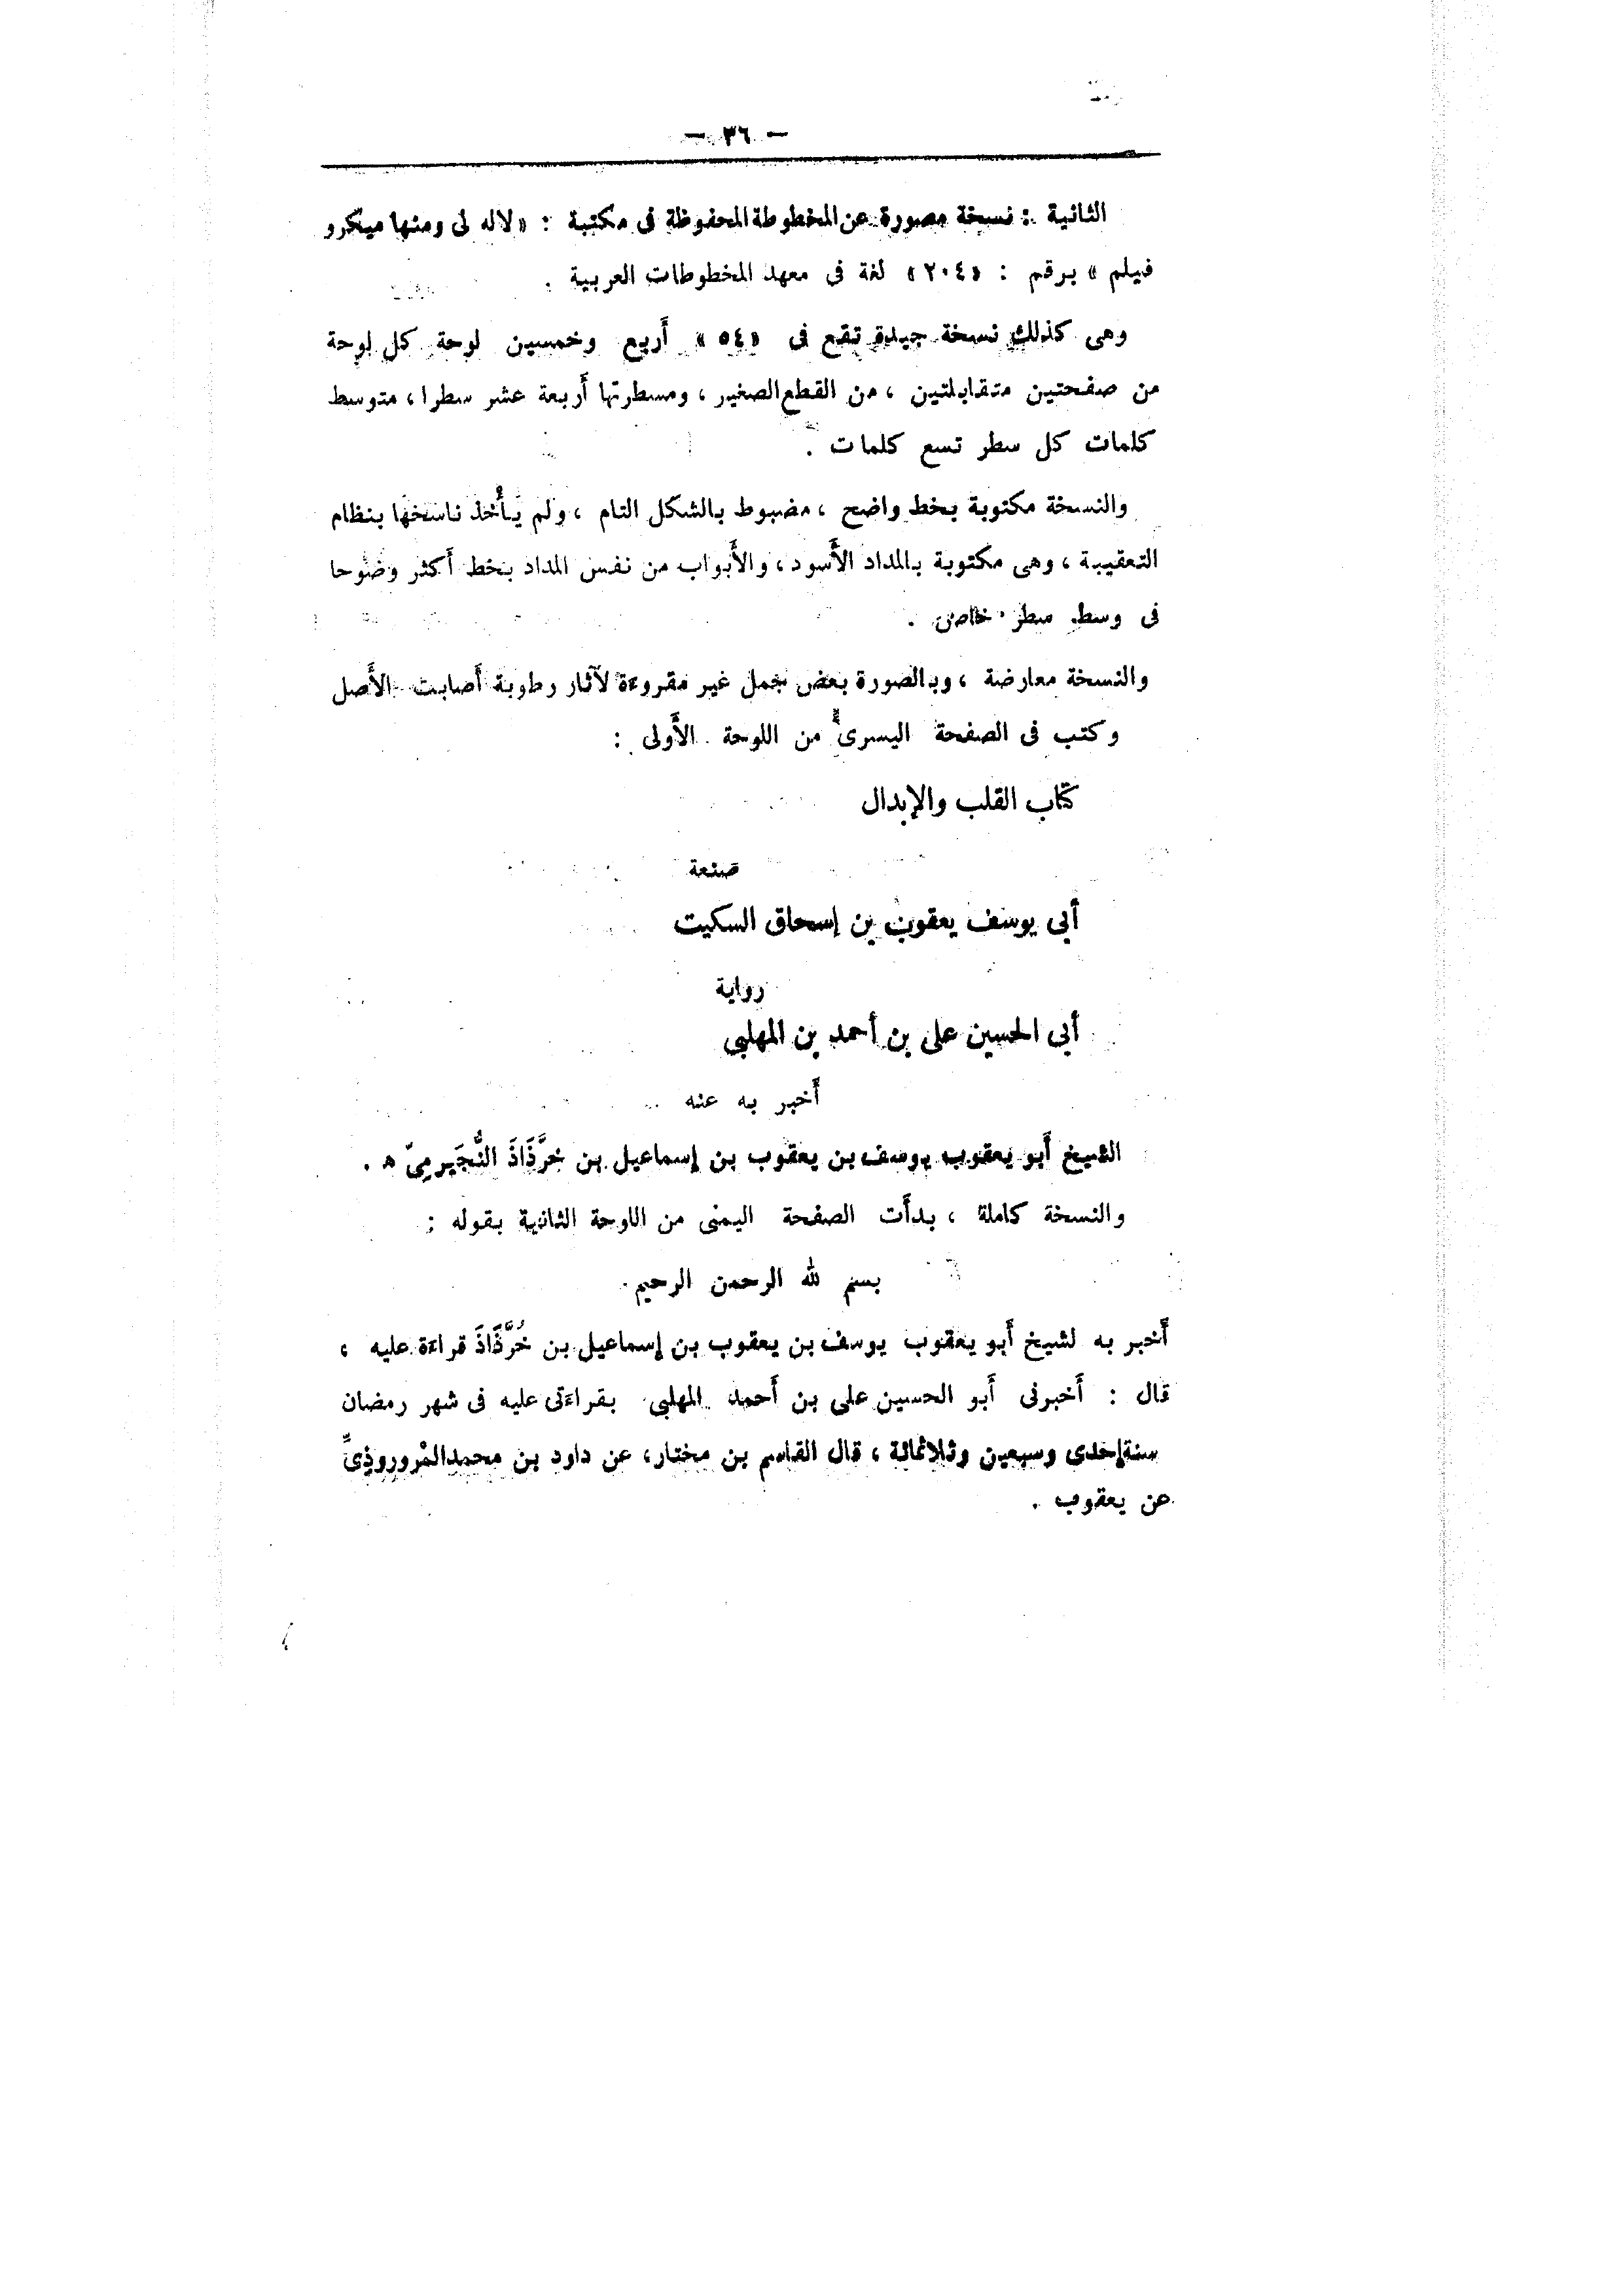 — ٣٦ —
الثانية : نسخة مصورة عن المخطوطة المحفوظة فى مكتبة : « لاله لى ومنها ميكرو
فيلم » برقم : «٢٠٤» لغة فى معهد المخطوطات العربية .
وهى كذلك نسخة جيدة تقع فى «٥٤» أربع وخمسين لوحة كل لوحة
من صفحتين متقابلتين ، من القطع الصغير ، ومسطرتها أربعة عشر سطرا ، متوسط
كلمات كل سطر تسع كلمات .
والنسخة مكتوبة بخط واضح ، مضبوط بالشكل التام ، ولم يأْخذ ناسخها بنظام
التعقيبة ، وهى مكتوبة بالمداد الأَسود ، والأَبواب من نفس المداد بخط أَكثر وضوحا
فى وسط سطر خاص .
والنسخة معارضة ، وبالصورة بعض جمل غير مقروءة لآثار رطوبة أَصابت الأَصل
وكتب فى الصفحة اليسرى من اللوحة الأَولى :
كتاب القلب والإبدال
صنعة
أبى يوسف يعقوب بن إسحاق السكيت
رواية
أبى الحسين على بن أحمد بن المهلبى
أَخبر به عنه
الشيخ أَبو يعقوب يوسف بن يعقوب بن إسماعيل بن خرَّذَاذَ النُّجَيرمِىّ ه .
والنسخة كاملة ، بدأَت الصفحة اليمنى من اللوحة الثانية بقوله :
بسم لله الرحمن الرحيم
أَخبر به لشيخ أَبو يعقوب يوسف بن يعقوب بن إسماعيل بن خُرَّذَاذَ قراءَة عليه ،
قال : أَخبرنى أَبو الحسين على بن أَحمد المهلبى بقراءَتى عليه فى شهر رمضان
سنة إحدى وسبعين وثلاثمائة ، قال القاسم بن مختار ، عن داود بن محمد المْروروذِىِّ
عن يعقوب .